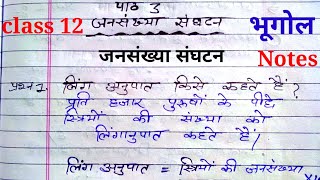 पाठ 3
class 12
जनसंख्या संघटन
भूगोल
जनसंख्या संघटन
Notes
प्रश्न 1. लिंग अनुपात किसे कहते हैं?
प्रति हजार पुरुषों के पीछे
स्त्रियों की संख्या को
लिंगानुपात कहते हैं।
लिंग अनुपात = स्त्रियों की जनसंख्या